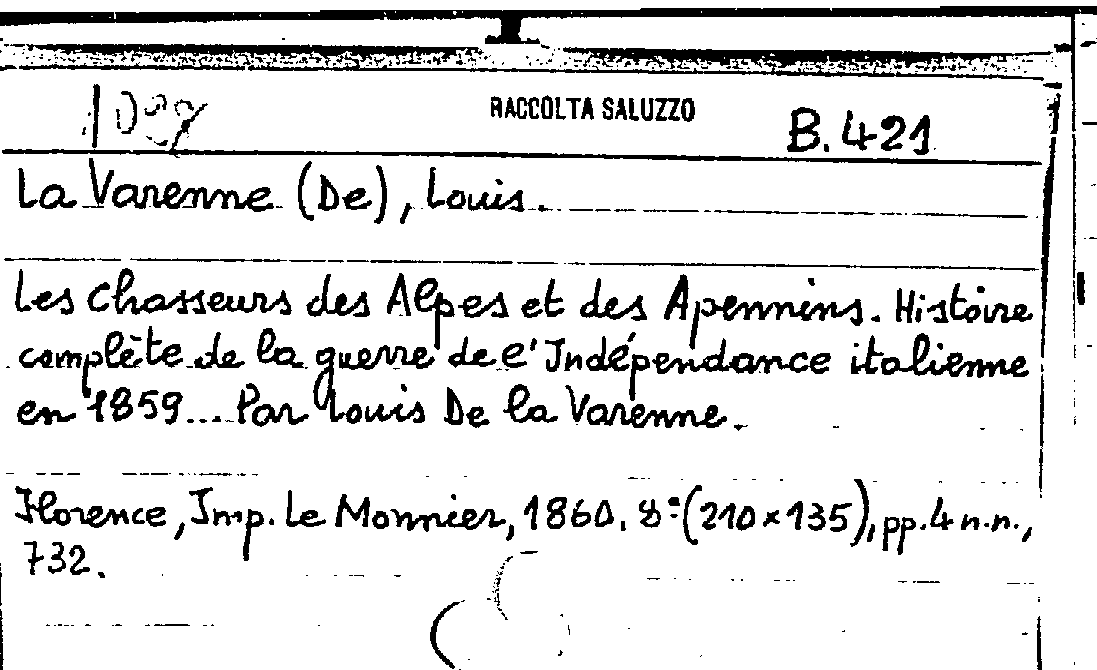 RACCOLTA SALUZZO B.421
La Varenne (De), Louis.
Les Chasseurs des Alpes et des Apennins. Histoire
complète de la guerre de l'Indépendance italienne
en 1859... Par Louis De la Varenne.
Florence, Imp. Le Monnier, 1860. 8º (210x135), pp. 4 n.n.,
732.